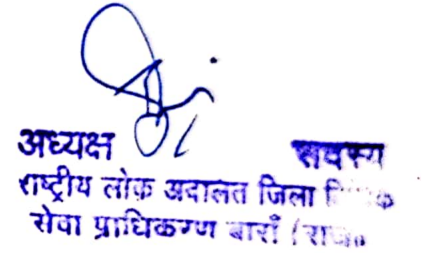 अध्यक्ष सदस्य
राष्ट्रीय लोक अदालत जिला
सेवा प्राधिकरण बाराँ (राज०